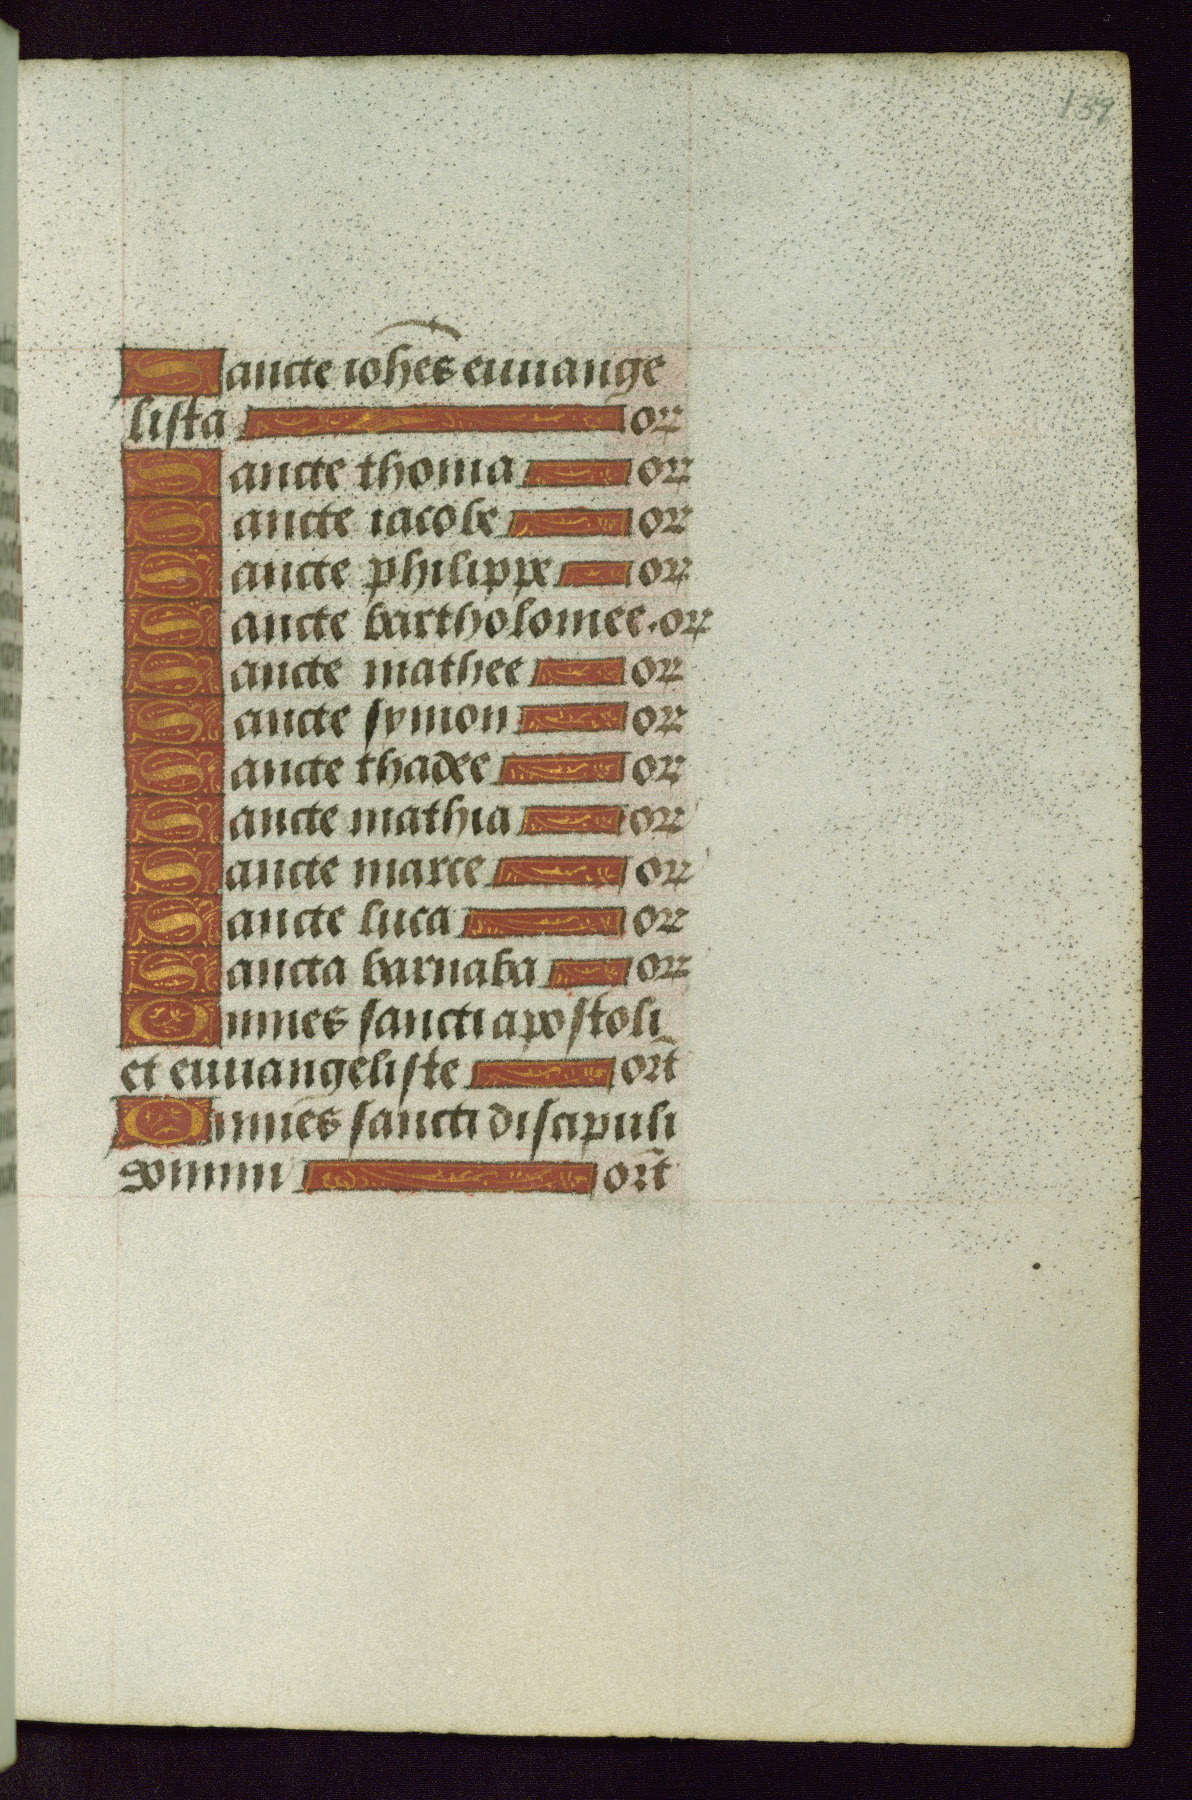 139
Sancte iohes euuange
lista or
Sancte thoma or
Sancte iacobe or
Sancte philippe or
Sancte bartholomee. or
Sancte mathee or
Sancte symon or
Sancte thadee or
Sancte mathia or
Sancte marce or
Sancte luca or
Sancta barnaba or
Omnes sancti apostoli
et euuangeliste ort
Omnes sancti discipuli
domini ort